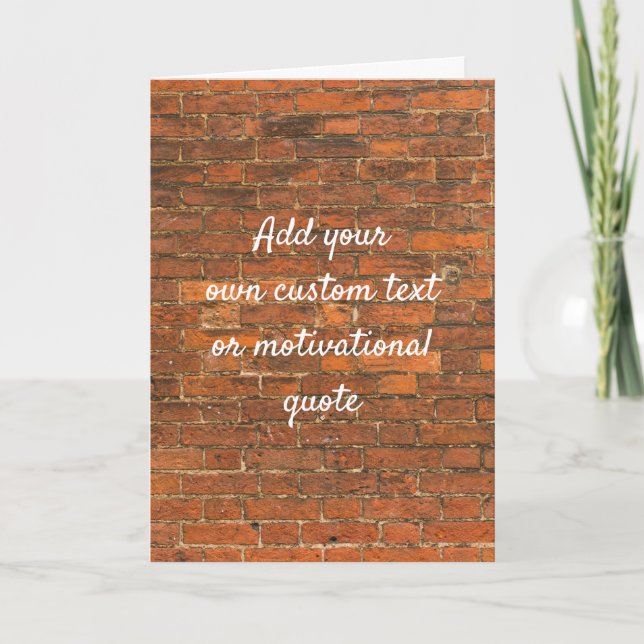 Add your
own custom text
or motivational
quote